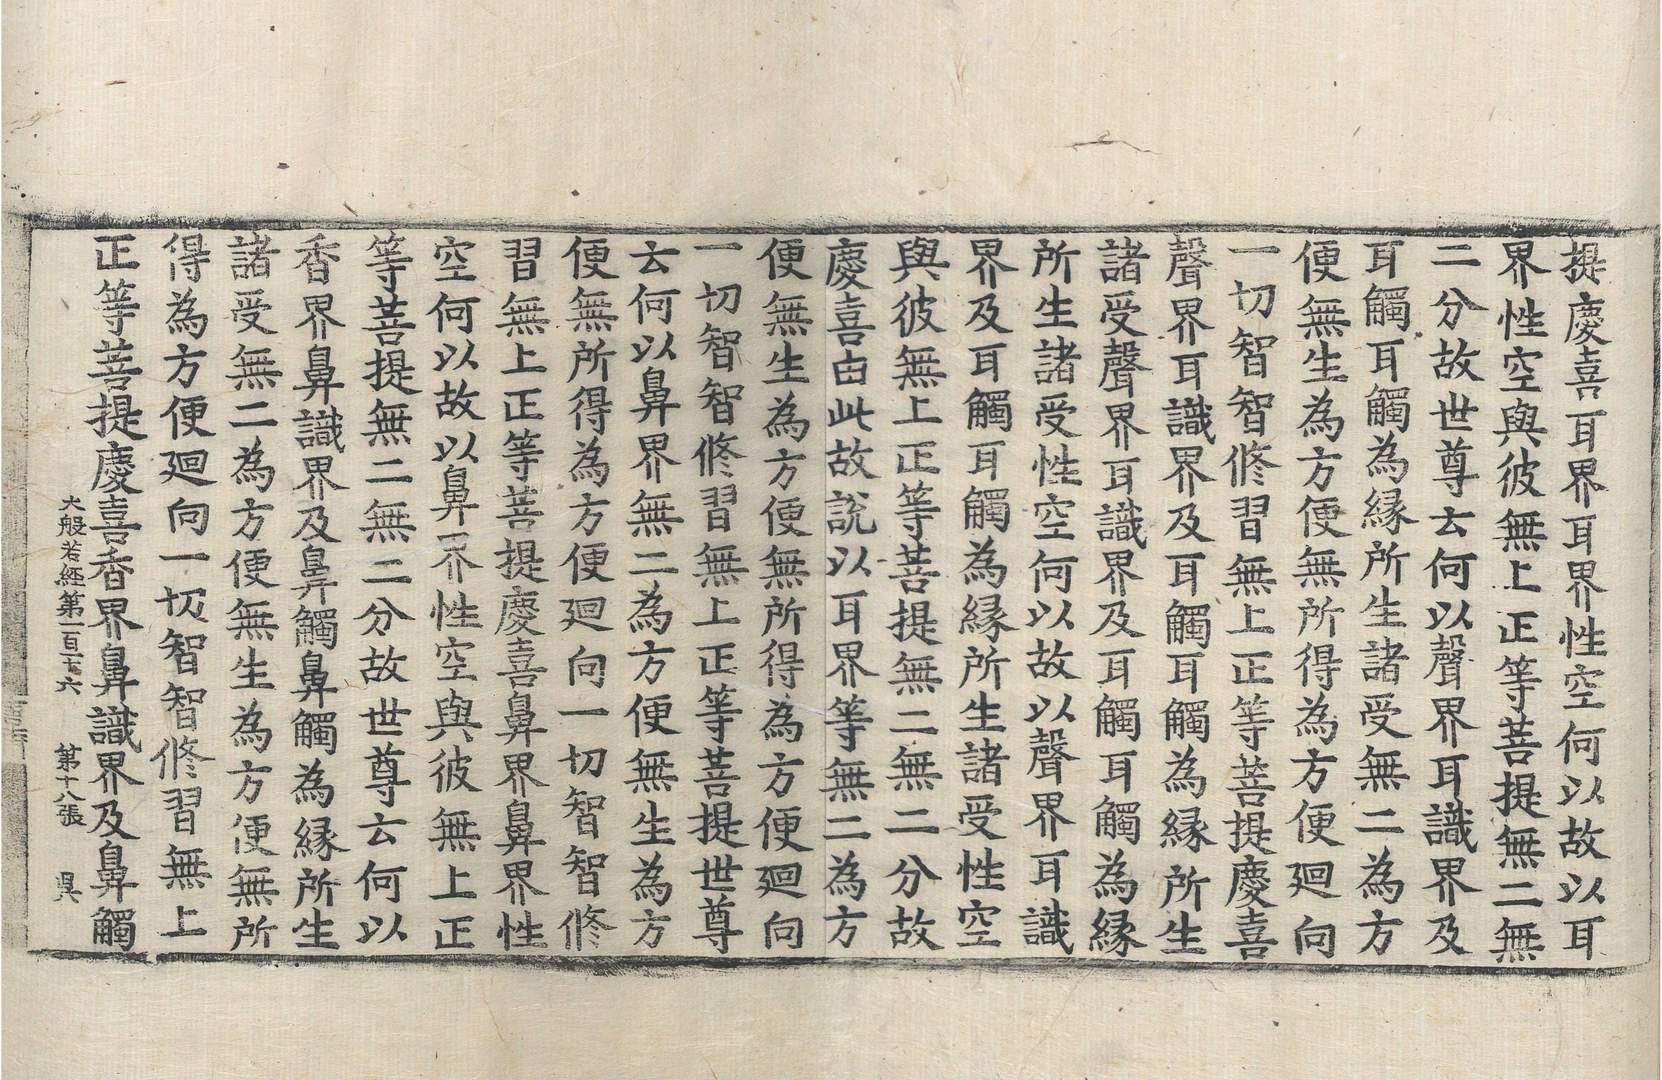 提慶喜耳界耳界性空何以故以耳
界性空與彼無上正等菩提無二無
二分故世尊云何以聲界耳識界及
耳觸耳觸為緣所生諸受無二為方
便無生為方便無所得為方便迴向
一切智智修習無上正等菩提慶喜
聲界耳識界及耳觸耳觸為緣所生
諸受聲界耳識界及耳觸耳觸為緣
所生諸受性空何以故以聲界耳識
界及耳觸耳觸為緣所生諸受性空
與彼無上正等菩提無二無二分故
慶喜由此故說以耳界等無二為方
便無生為方便無所得為方便迴向
一切智智修習無上正等菩提世尊
云何以鼻界無二為方便無生為方
便無所得為方便迴向一切智智修
習無上正等菩提慶喜鼻界鼻界性
空何以故以鼻界性空與彼無上正
等菩提無二無二分故世尊云何以
香界鼻識界及鼻觸鼻觸為緣所生
諸受無二為方便無生為方便無所
得為方便迴向一切智智修習無上
正等菩提慶喜香界鼻識界及鼻觸
大般若經第一百十六 第十八張 昃